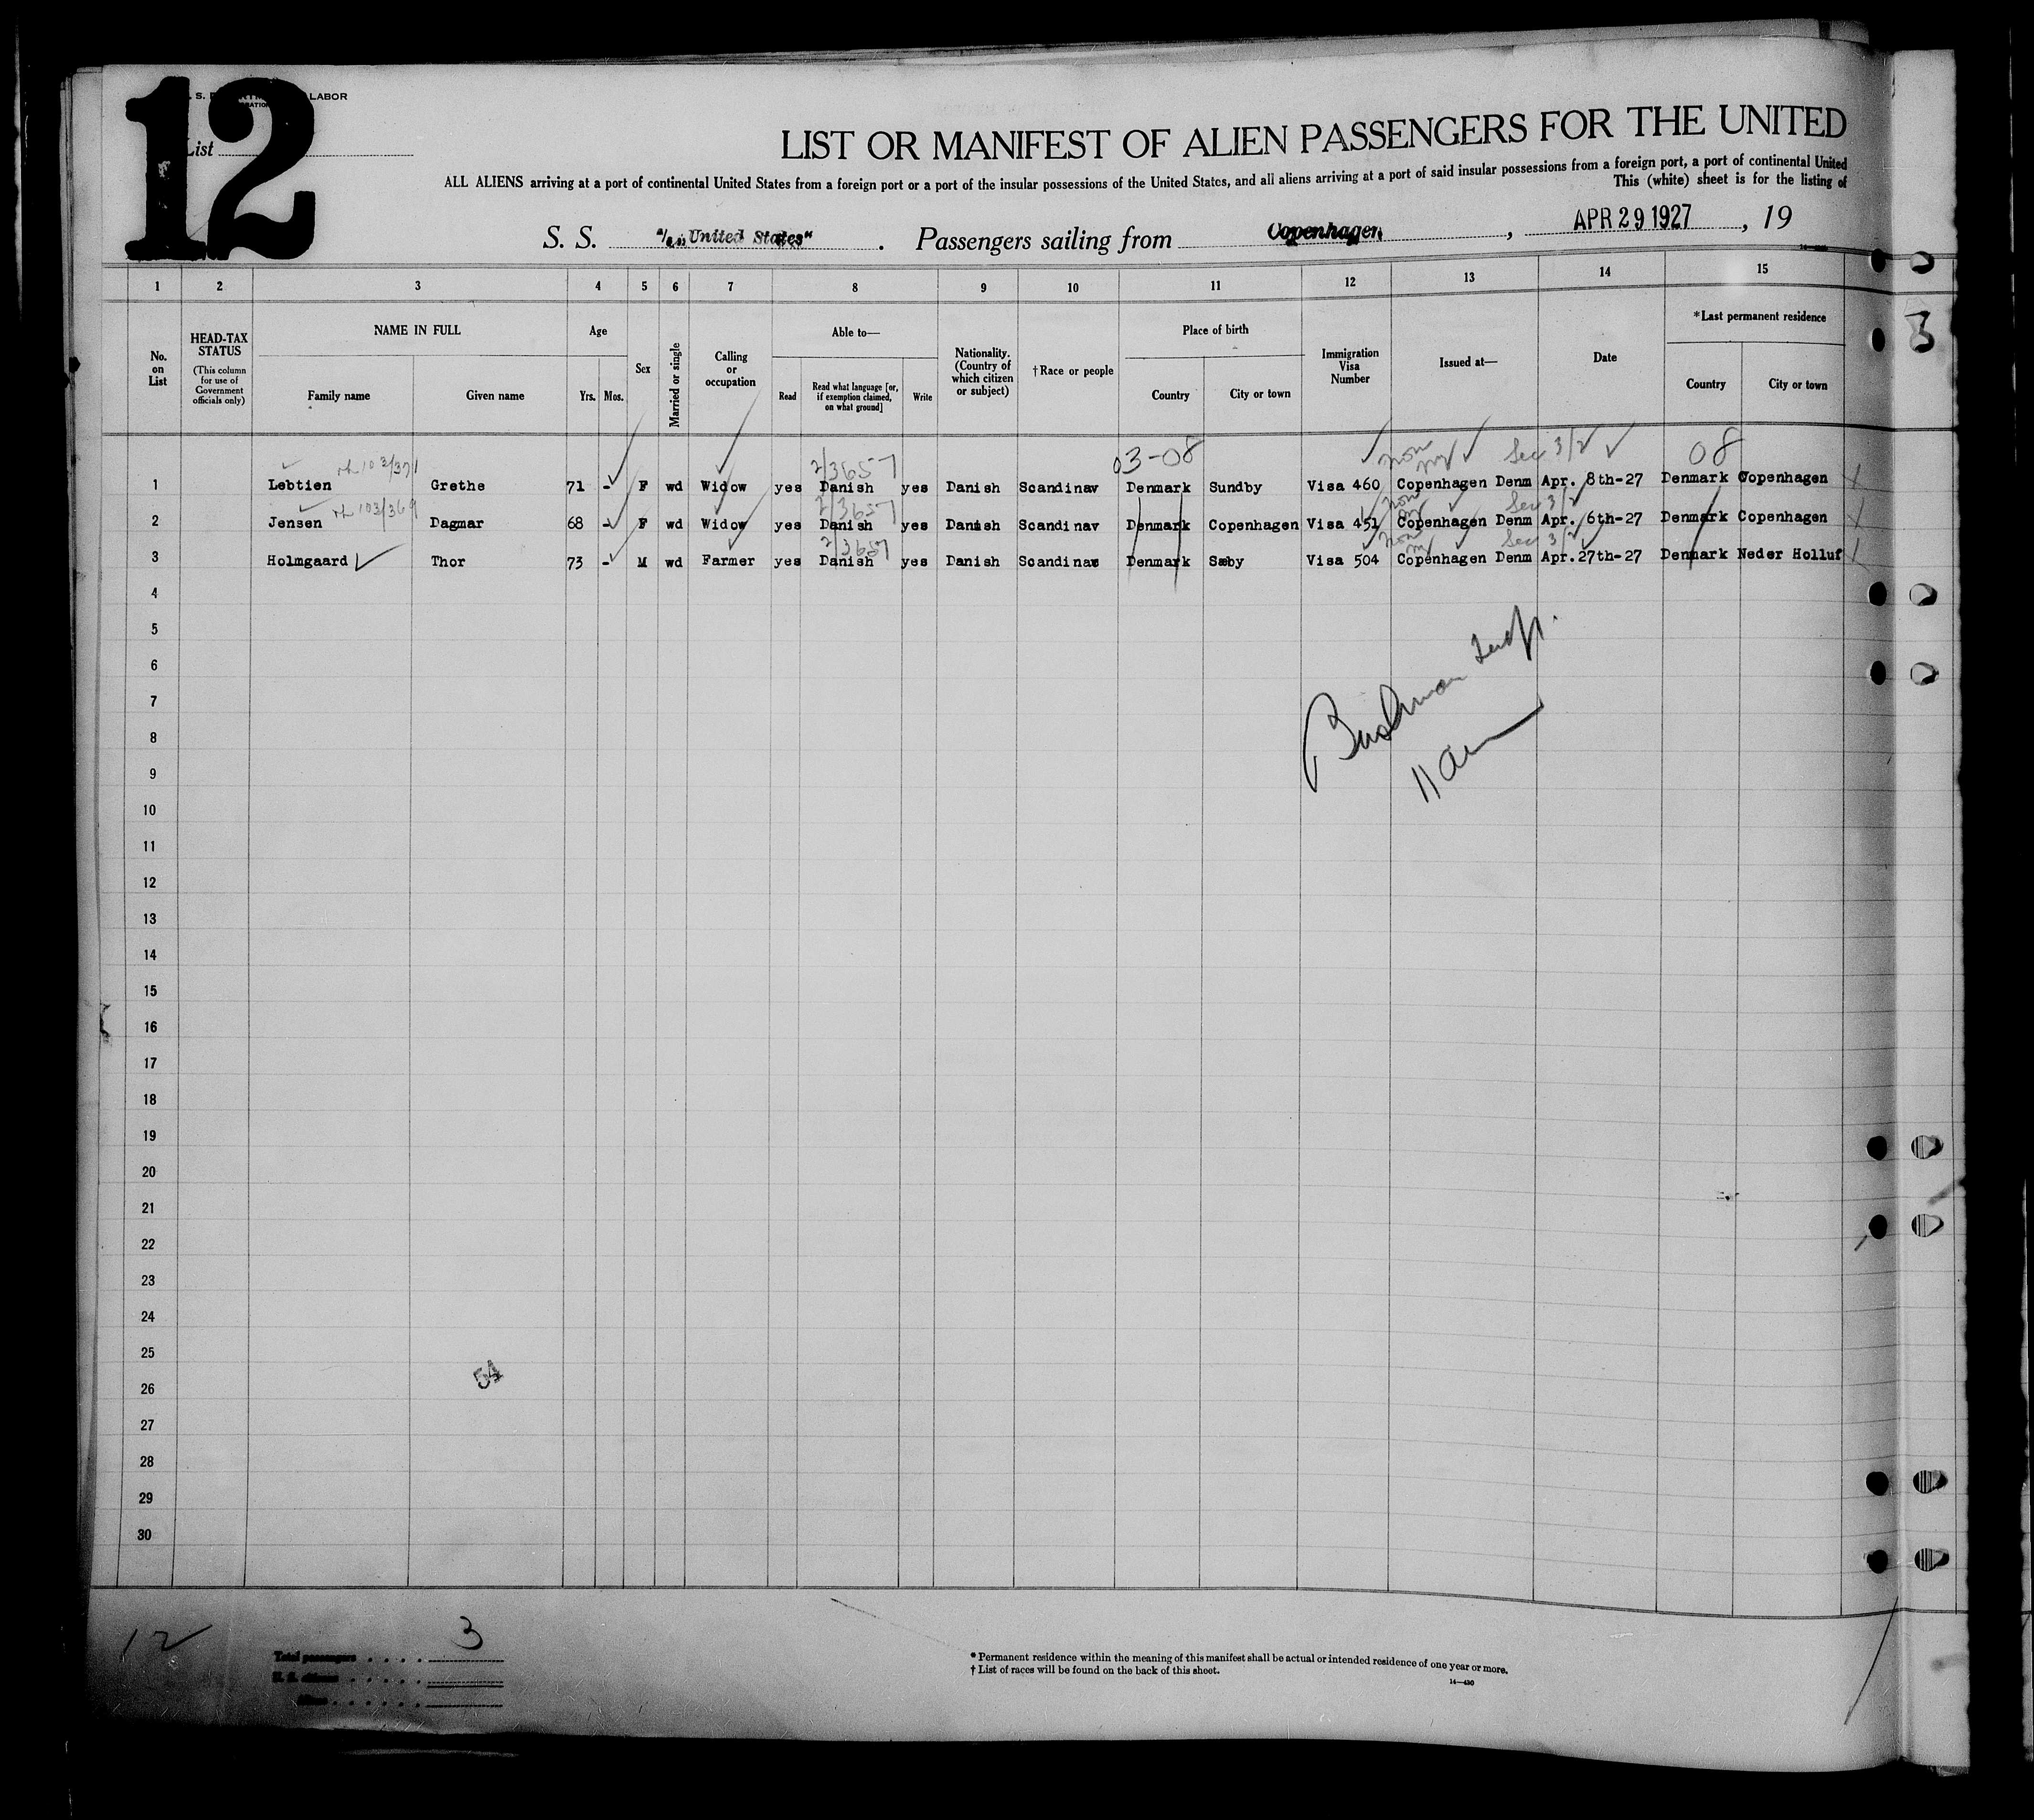 12
LABOR
List
LIST OR MANIFEST OF ALIEN PASSENGERS FOR THE UNITED
ALL ALIENS arriving at a port of continental United States from a foreign port or a port of the insular possessions of the United States, and all aliens arriving at a port of said insular possessions from a foreign port, a port of continental United
This (white) sheet is for the listing of
S. S. "s/s United States" . Passengers sailing from Copenhagen , APR 29 1927 , 19
1 2 3 4 5 6 7 8 9 10 11 12 13 14 15
No. on List
HEAD-TAX STATUS (This column for use of Government officials only)
NAME IN FULL
Family name Given name
Age
Yrs. Mos.
Sex
Married or single
Calling or occupation
Able to—
Read Read what language [or, if exemption claimed, on what ground] Write
Nationality. (Country of which citizen or subject)
†Race or people
Place of birth
Country City or town
Immigration Visa Number
Issued at—
Date
*Last permanent residence
Country City or town
3
2/3657 03-08 Sec 3/2 08
1 Lebtien Grethe 71 - F wd Widow yes Danish yes Danish Scandinav Denmark Sundby Visa 460 Copenhagen Denm Apr. 8th-27 Denmark Copenhagen
103/369 2/3657 Sec 3/2
2 Jensen Dagmar 68 - F wd Widow yes Danish yes Danish Scandinav Denmark Copenhagen Visa 451 Copenhagen Denm Apr. 6th-27 Denmark Copenhagen
2/3657 Sec 3/2
3 Holmgaard Thor 73 - M wd Farmer yes Danish yes Danish Scandinav Denmark Sæby Visa 504 Copenhagen Denm Apr.27th-27 Denmark Neder Holluf
4
5
6
7
8
9
10
11
12
13
14
15
16
17
18
19
20
21
22
23
24
25
26
27
28
29
30
Bushman Insp.
11 am
54
12
Total passengers . . . . 3
U. S. citizens . . . . .
Aliens . . . . . .
* Permanent residence within the meaning of this manifest shall be actual or intended residence of one year or more.
† List of races will be found on the back of this sheet.
14—430